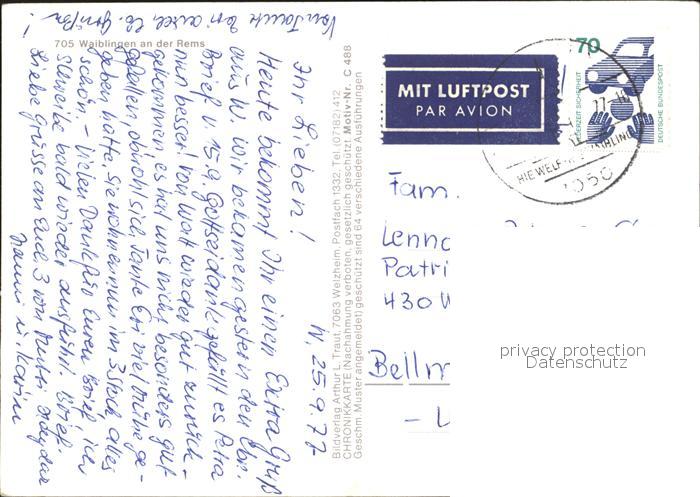 Von Tante Evi auch lb. Grüße!
705 Waiblingen an der Rems
W, 25.9.77
Ihr Lieben!
Heute bekommt Ihr einen Extra Gruß
aus W. wir bekamen gestern den
Brief v. 15.9. Gottseidank gefällt es Petra
nun besser! Von Walt wieder gut zurück-
gekommen es hat uns nicht besonders gut
gefallen obwohl sich Tante Evi viel Mühe ge-
geben hatte. Sie wohnen nun im 3 Stock alles
schön. - Vielen Dank für Euren Brief ich
schreibe bald wieder ausführl. Brief.
Liebe Grüsse an Euch 3 von
u. Karin
Bildverlag Arthur L. Traut, 7063 Welzheim, Postfach 1332, Tel. (07182) 412
CHRONIKKARTE (Nachahmung verboten, gesetzlich geschützt) Motiv-Nr. C 488
Geschm. Muster angemeldet) geschützt sind 64 verschiedene Ausführungen
MIT LUFTPOST
PAR AVION
70
JEDERZEIT SICHERHEIT
DEUTSCHE BUNDESPOST
7050
Fam.
Lenn
Patri
430 W
Bellm
privacy protection
Datenschutz